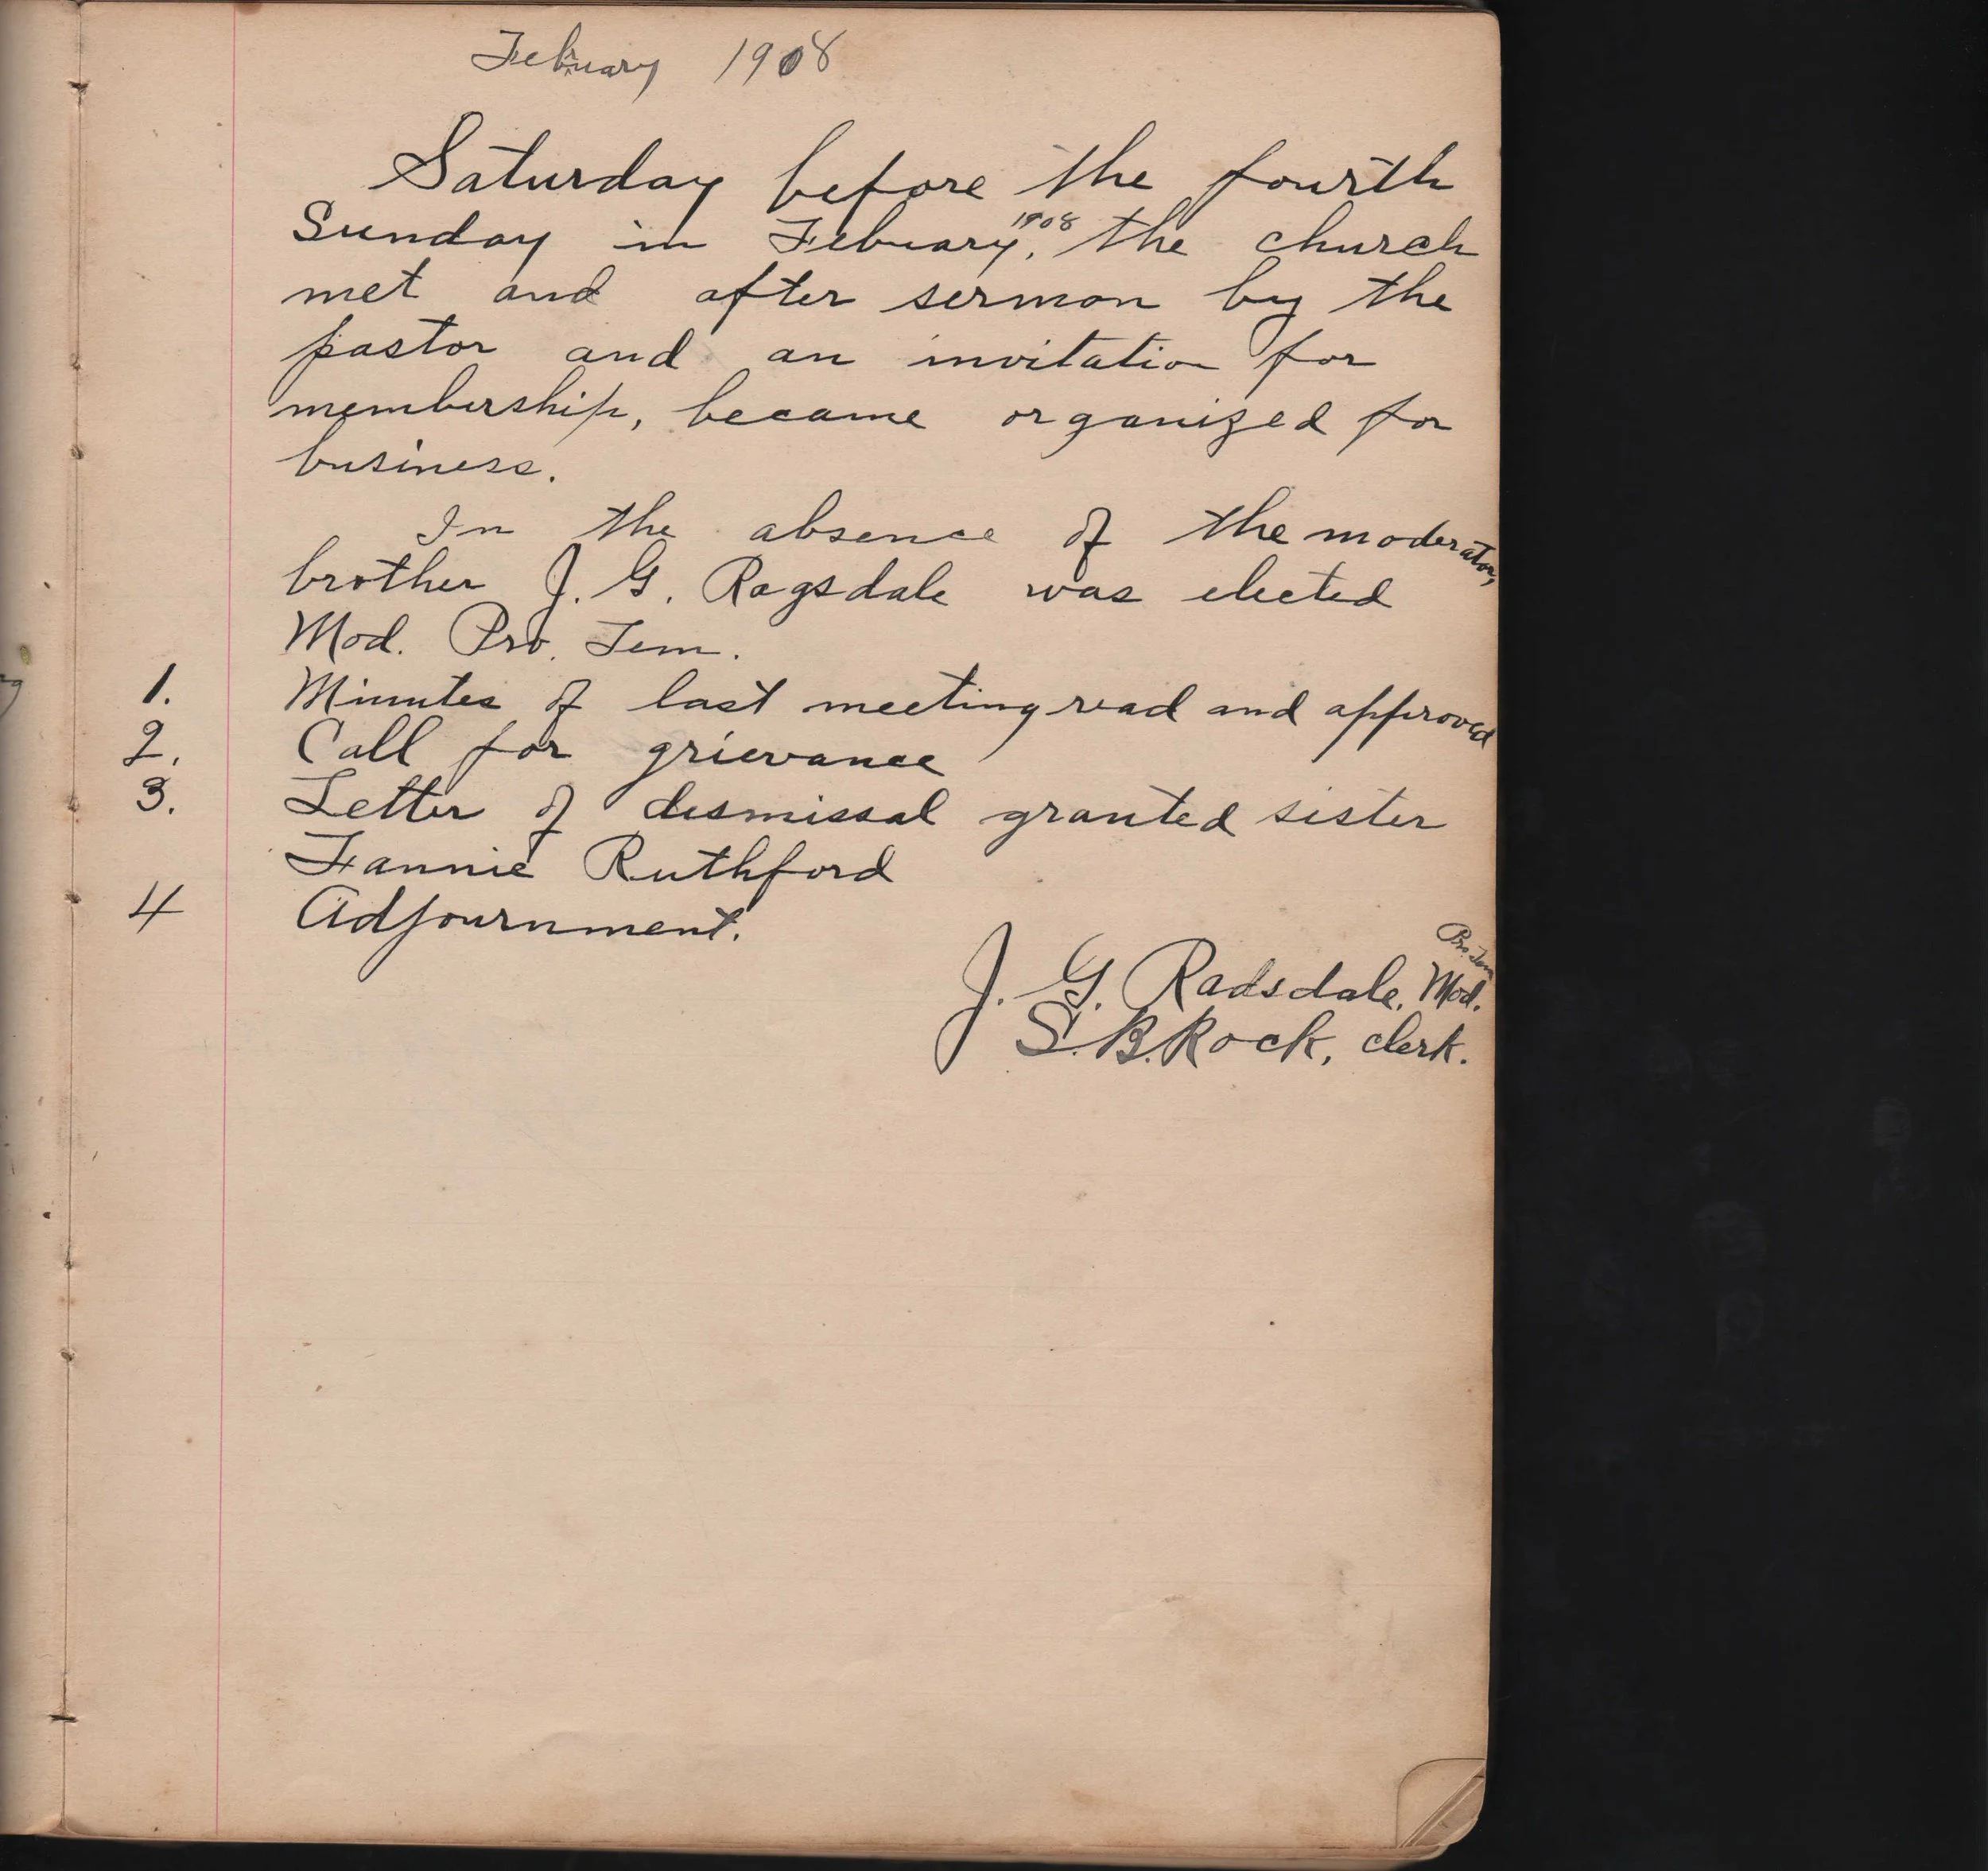 February 1908
Saturday before the fourth
Sunday in Febuary, 1908 the church
met and after sermon by the
pastor and an invitation for
membership, became organized for
business.
In the absence of the moderator,
brother J. G. Ragsdale was elected
Mod. Pro. Tem.
1. Minutes of last meeting read and approved
2. Call for grievance
3. Letter of dismissal granted sister
Fannie Ruthford
4 Adjournment.
Pro. Tem
J. G. Radsdale, Mod.
S. B. Rock, clerk.